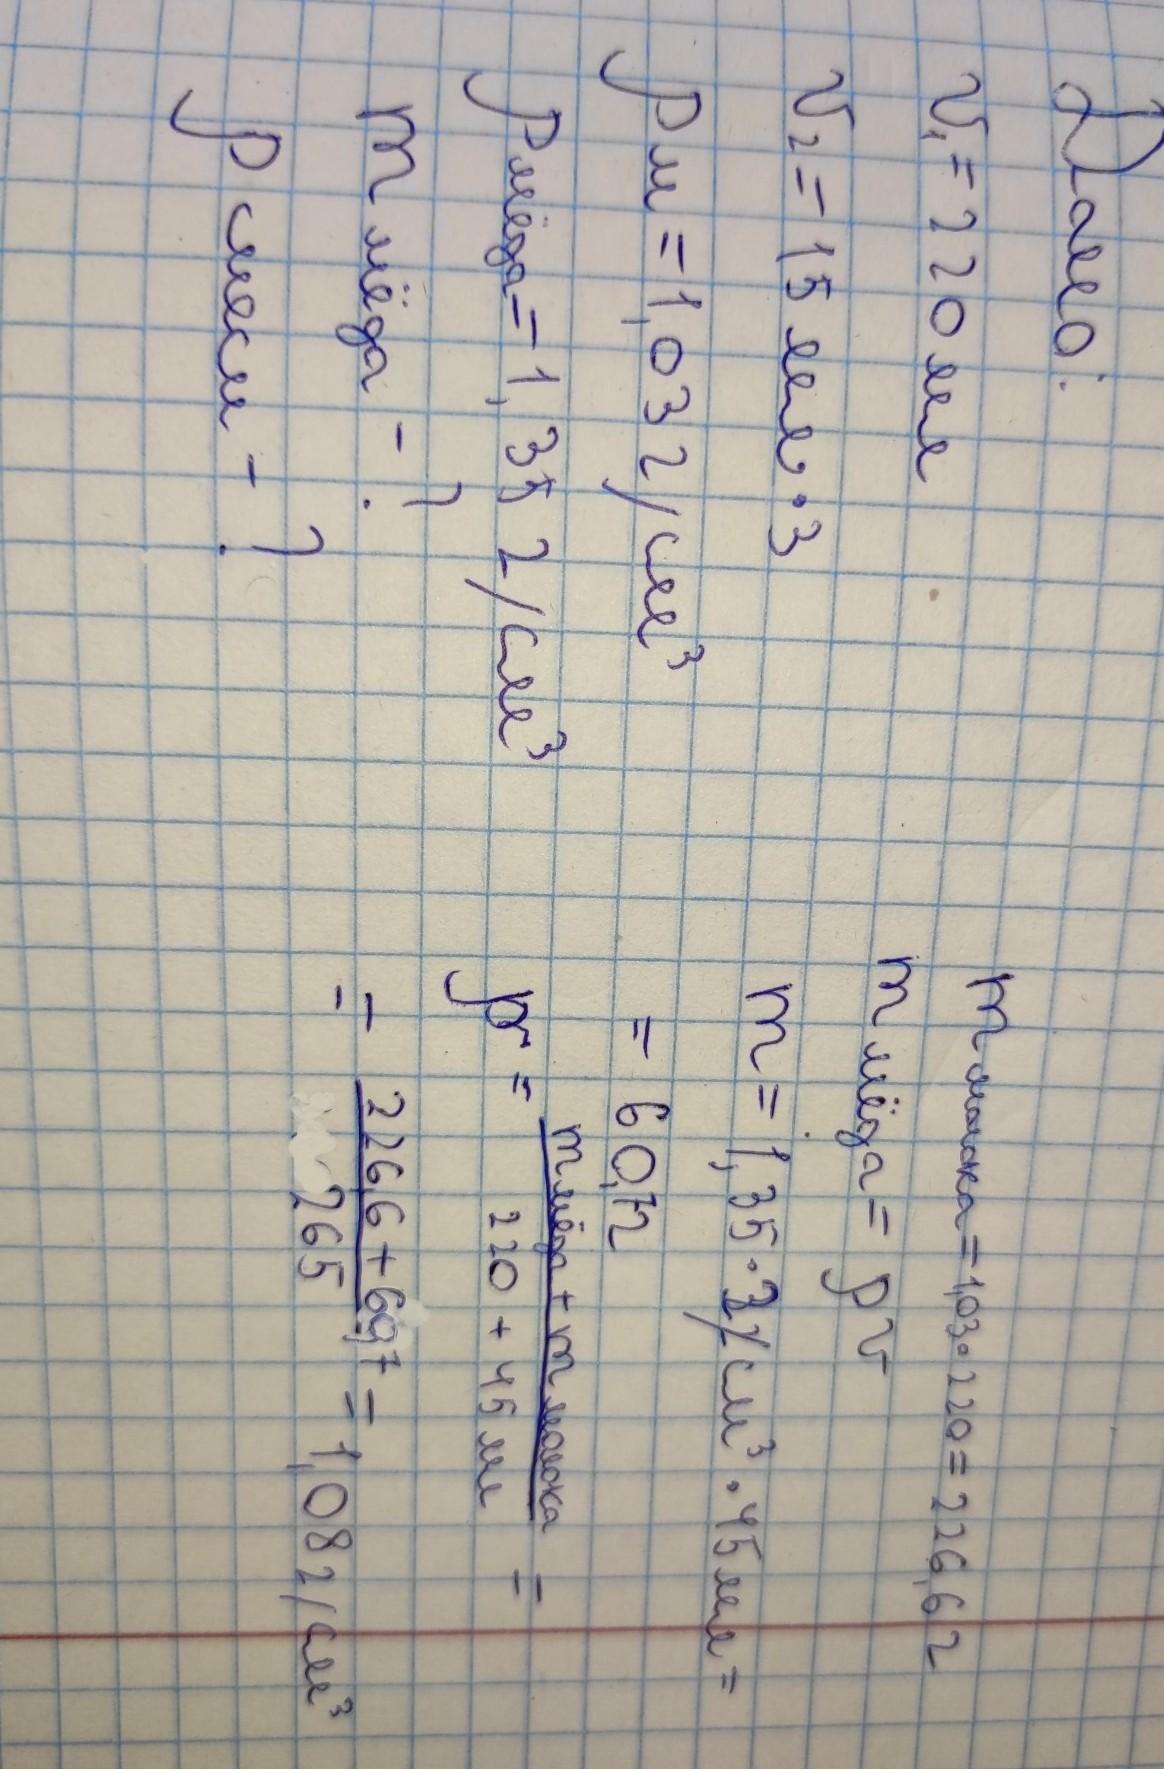 Дано:
V₁ = 220 мл
V₂ = 15 мл · 3
ρм = 1,03 г/см³
ρмёда = 1,35 г/см³
m мёда - ?
ρ смеси - ?
m молока = 1,03 · 220 = 226,6 г
m мёда = ρv
m = 1,35 · г/см³ · 45 мл =
= 60,7г
ρ = m мёда + m молока / 220 + 45 мл =
= 226,6 + 60,7 / 265 = 1,08 г/см³